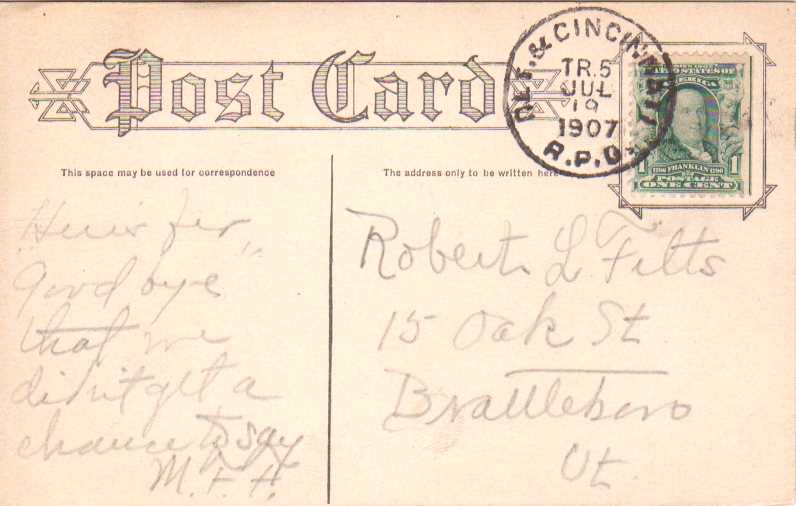 Post Card
& CINCINNATI
TR. 5
JUL
19
1907
R.P.O.
UNITED STATES OF
AMERICA
1 FRANKLIN 1
POSTAGE
ONE CENT
This space may be used for correspondence
The address only to be written here
Here's fer
"Good bye"
that we
didn't get a
chance to say
M. F. H.
Robert L Fitts
15 Oak St
Brattleboro
Vt.